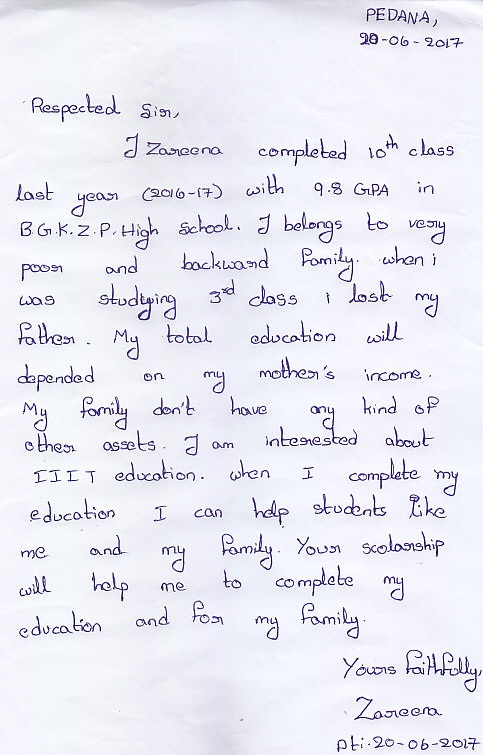 PEDANA,
20-06-2017
Respected Sir,
I Zareena completed 10th class
last year (2016-17) with 9.8 GPA in
B.G.K.Z.P. High School. I belongs to very
poor and backward family. when i
was studying 3rd class i lost my
father. My total education will
depended on my mother's income.
My family don't have any kind of
other assets. I am interested about
IIIT education. when I complete my
education I can help students like
me and my family. Your scolarship
will help me to complete my
education and for my family.
Yours faithfully,
Zareena
Dt:20-06-2017